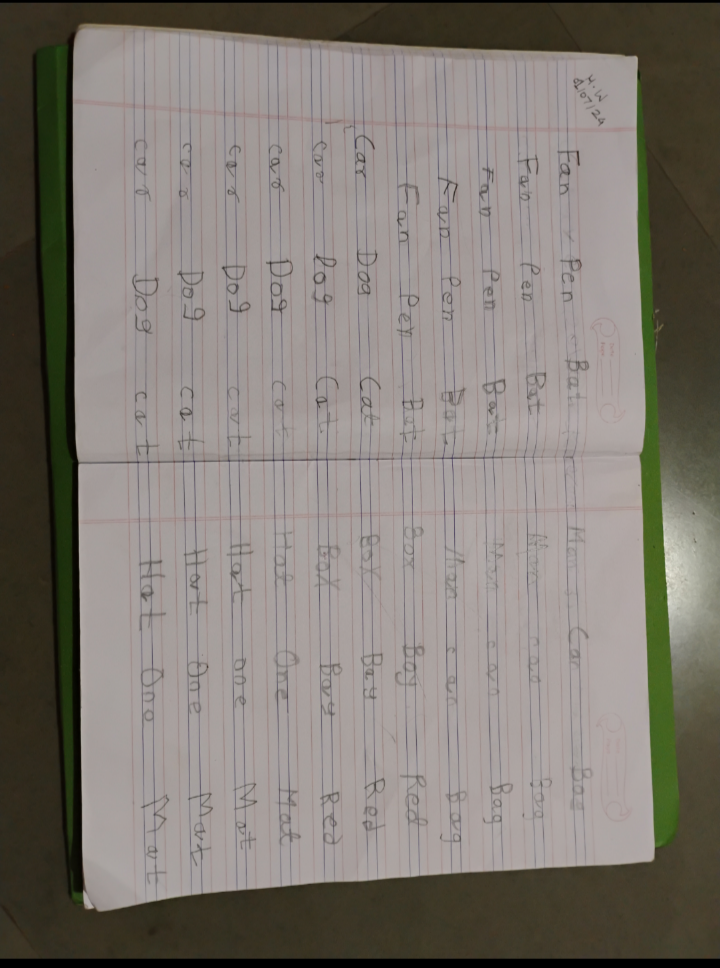 H.W
Fan Pen Bat
Fan Pen Bat
Fan Pen Bat
Fan Pen Bat
Fan Pen Bat
Car Dog Cat
car Dog Cat
car Dog cat
car Dog cat
car Dog cat
car Dog cat
Man Car Bag
Man can Bag
Man can Bag
Man can Bag
Box Boy Red
Box Bay Red
Box Bay Red
Hat One Mat
Hat one Mat
Hat One Mat
Hat One Mat